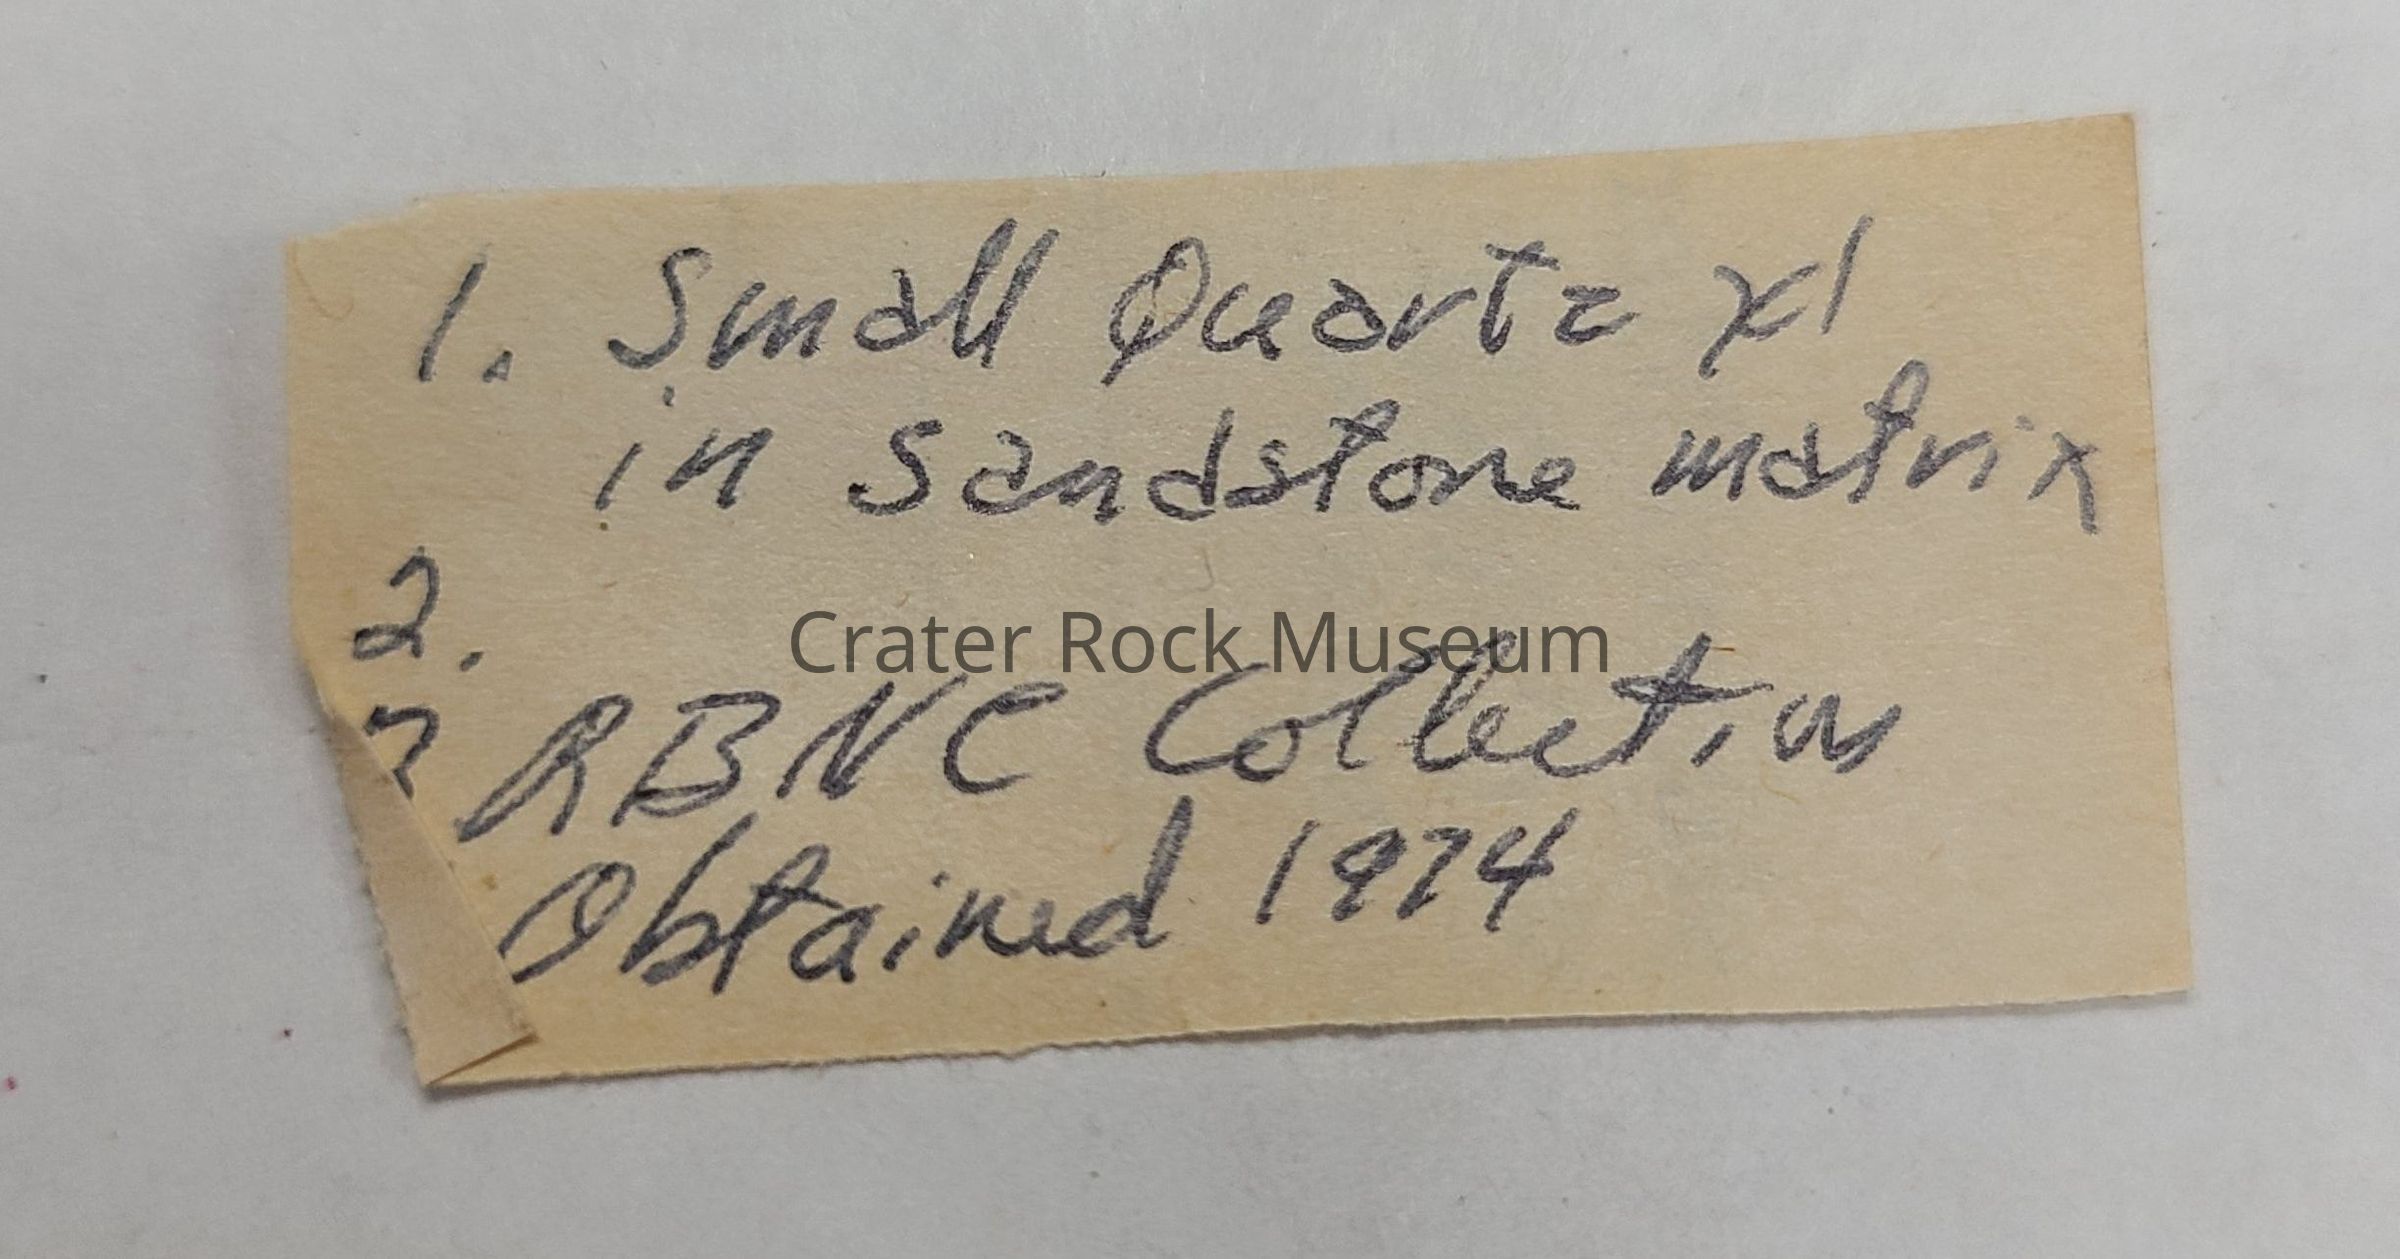 1. Small Quartz xl
in Sandstone matrix
2.
Crater Rock Museum
RBNC Collection
Obtained 1974